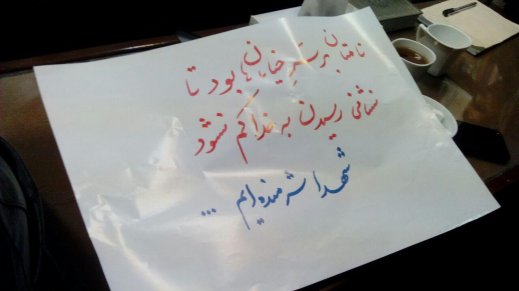 نامتان بر سَرِ خیابان ها بود تا
نشانی رسیدن به خدا گم نشود
شهدا شرمنده ایم ...